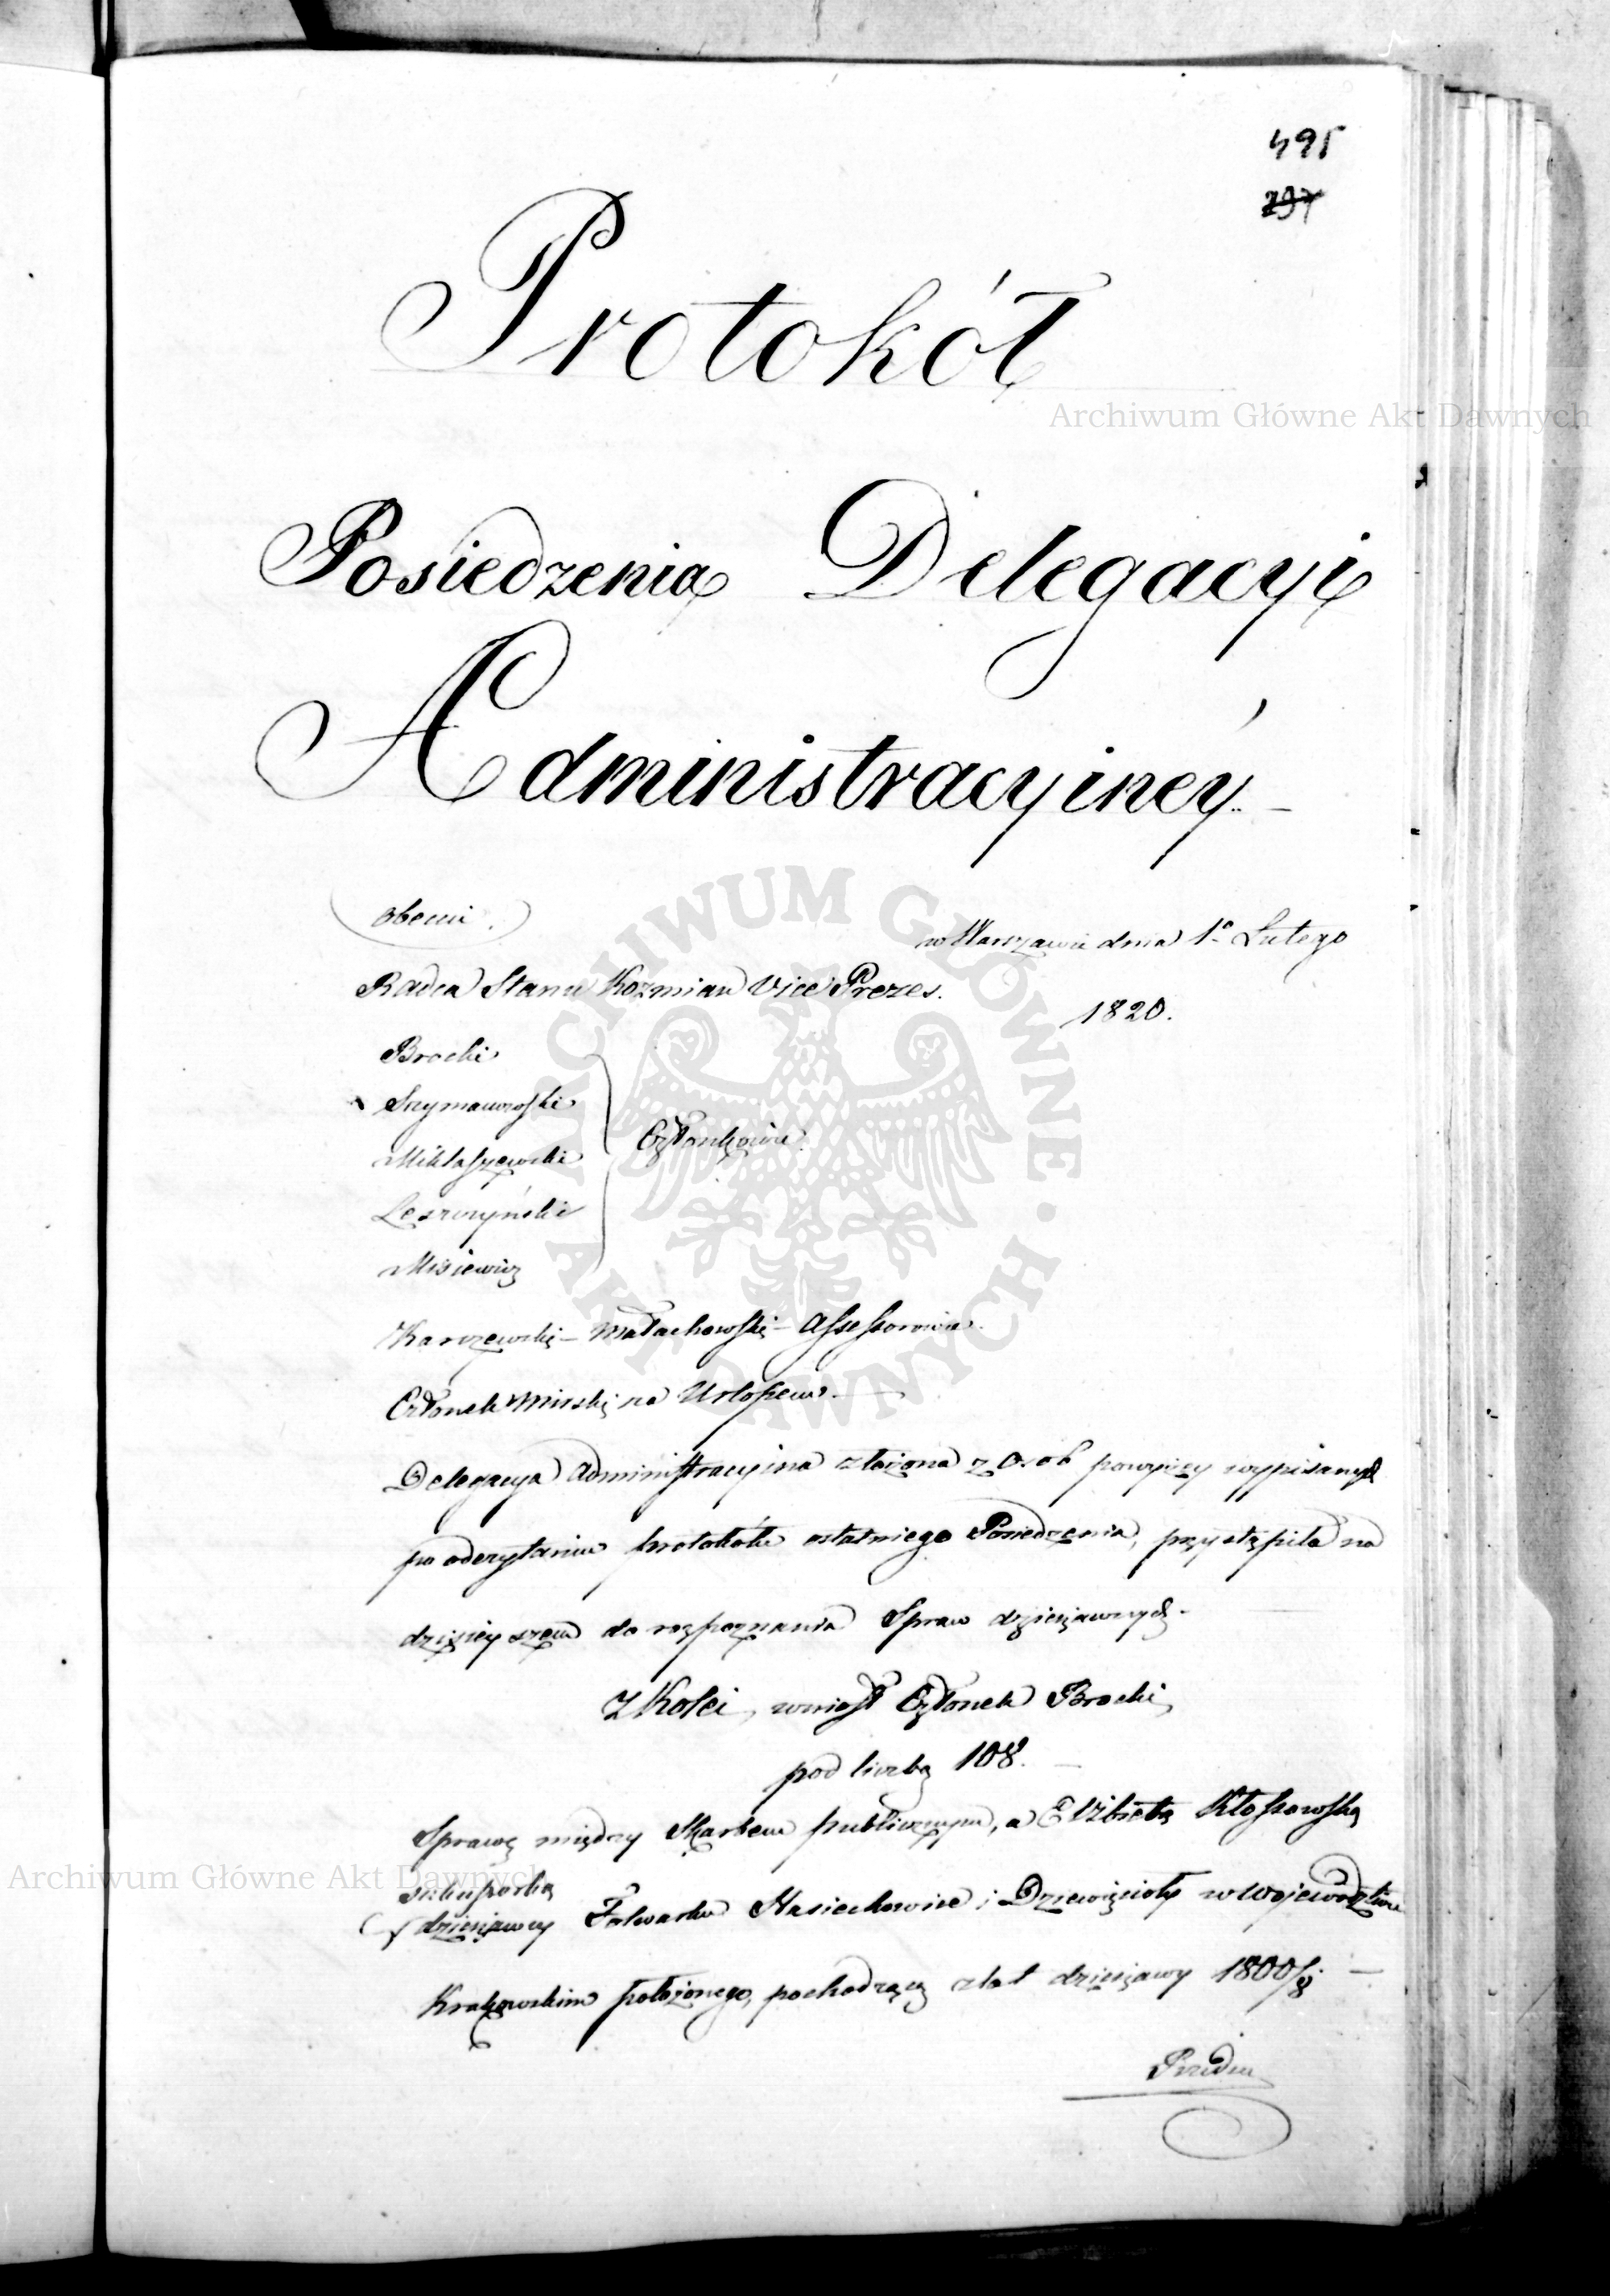 495
237
Protokół
Posiedzenia Delegacyi
Administracyiney.
obecni.
w Warszawie dnia 1o Lutego
1820.
Radca Stanu Kozmian Vice Prezes.
Brocki
Szymanowski
Miklaszewski
Członkowie.
Leszczyński
Misiewicz
Karczewski - Małachowski - Assessorowie.
Członek Mirski na Urlopem.
Delegacya Administracyina złożona z Osob powyżey wypisanych
po odczytaniu protokółu ostatniego Posiedzenia, przystąpiła na
dzisieyszem do rozpoznania Spraw dzierżawnych.
Z Kolei, wniosł Członek Brocki,
pod liczbą 108.
Sprawę między Skarbem publicznym, a Elżbietą Kłossowską
dzierżawcy Folwarku i w Wojewodztwie
Krakowskim położonego, pochodzącą z lat dzierżawy 1800/8.
Archiwum Główne Akt Dawnych
ARCHIWUM GŁÓWNE AKT DAWNYCH
Archiwum Główne Akt Dawnych